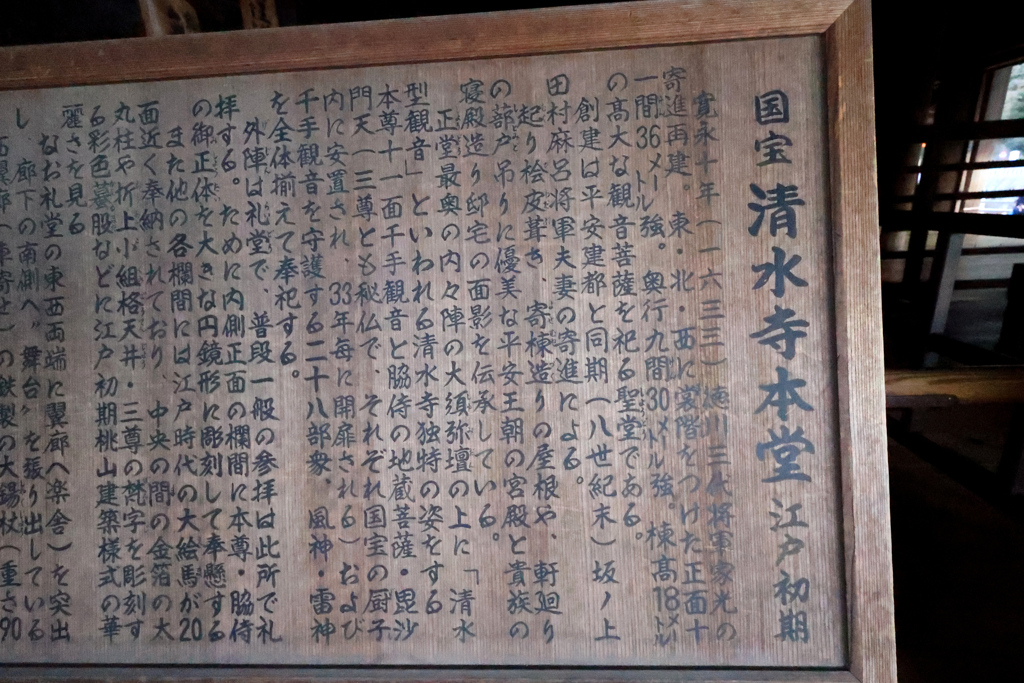 国宝 清水寺本堂 江戸初期
寛永十年(一六三三)徳川三代将軍家光の
寄進再建。東・北・西に裳階をつけた正面十
一間36メートル強。奥行九間30メートル強。棟高18メートル
の高大な観音菩薩を祀る聖堂である。
創建は平安建都と同期(八世紀末)坂ノ上
田村麻呂将軍夫妻の寄進による。
起り桧皮葺き、寄棟造りの屋根や、軒廻り
の蔀戸吊りに優美な平安王朝の宮殿と貴族の
寝殿造り邸宅の面影を伝承している。
正堂最奥の内々陣の大須弥壇の上に「清水
型観音」といわれる清水寺独特の姿をする
本尊十一面千手観音と脇侍の地蔵菩薩・毘沙
門天(三尊とも秘仏で、それぞれ国宝の厨子
内に安置され、33年毎に開扉される)および
千手観音を守護する二十八部衆、風神・雷神
を全体揃えて奉祀する。
外陣は礼堂で、普段一般の参拝は此所で礼
拝する。ために内側正面の欄間に本尊・脇侍
の御正体を大きな円鏡形に彫刻して奉懸する
また他の各欄間には江戸時代の大絵馬が20
面近く奉納されており、中央の間の金箔の大
丸柱や折上小組格天井・三尊の梵字を彫刻す
る彩色蟇股などに江戸初期桃山建築様式の華
麗さを見る
なお礼堂の東西両端に翼廊へ楽舎)を突出
し 廊下の南側へ〝舞台〟を張り出している
西翼廊(車寄せ)の鉄製の大錫杖(重さ90